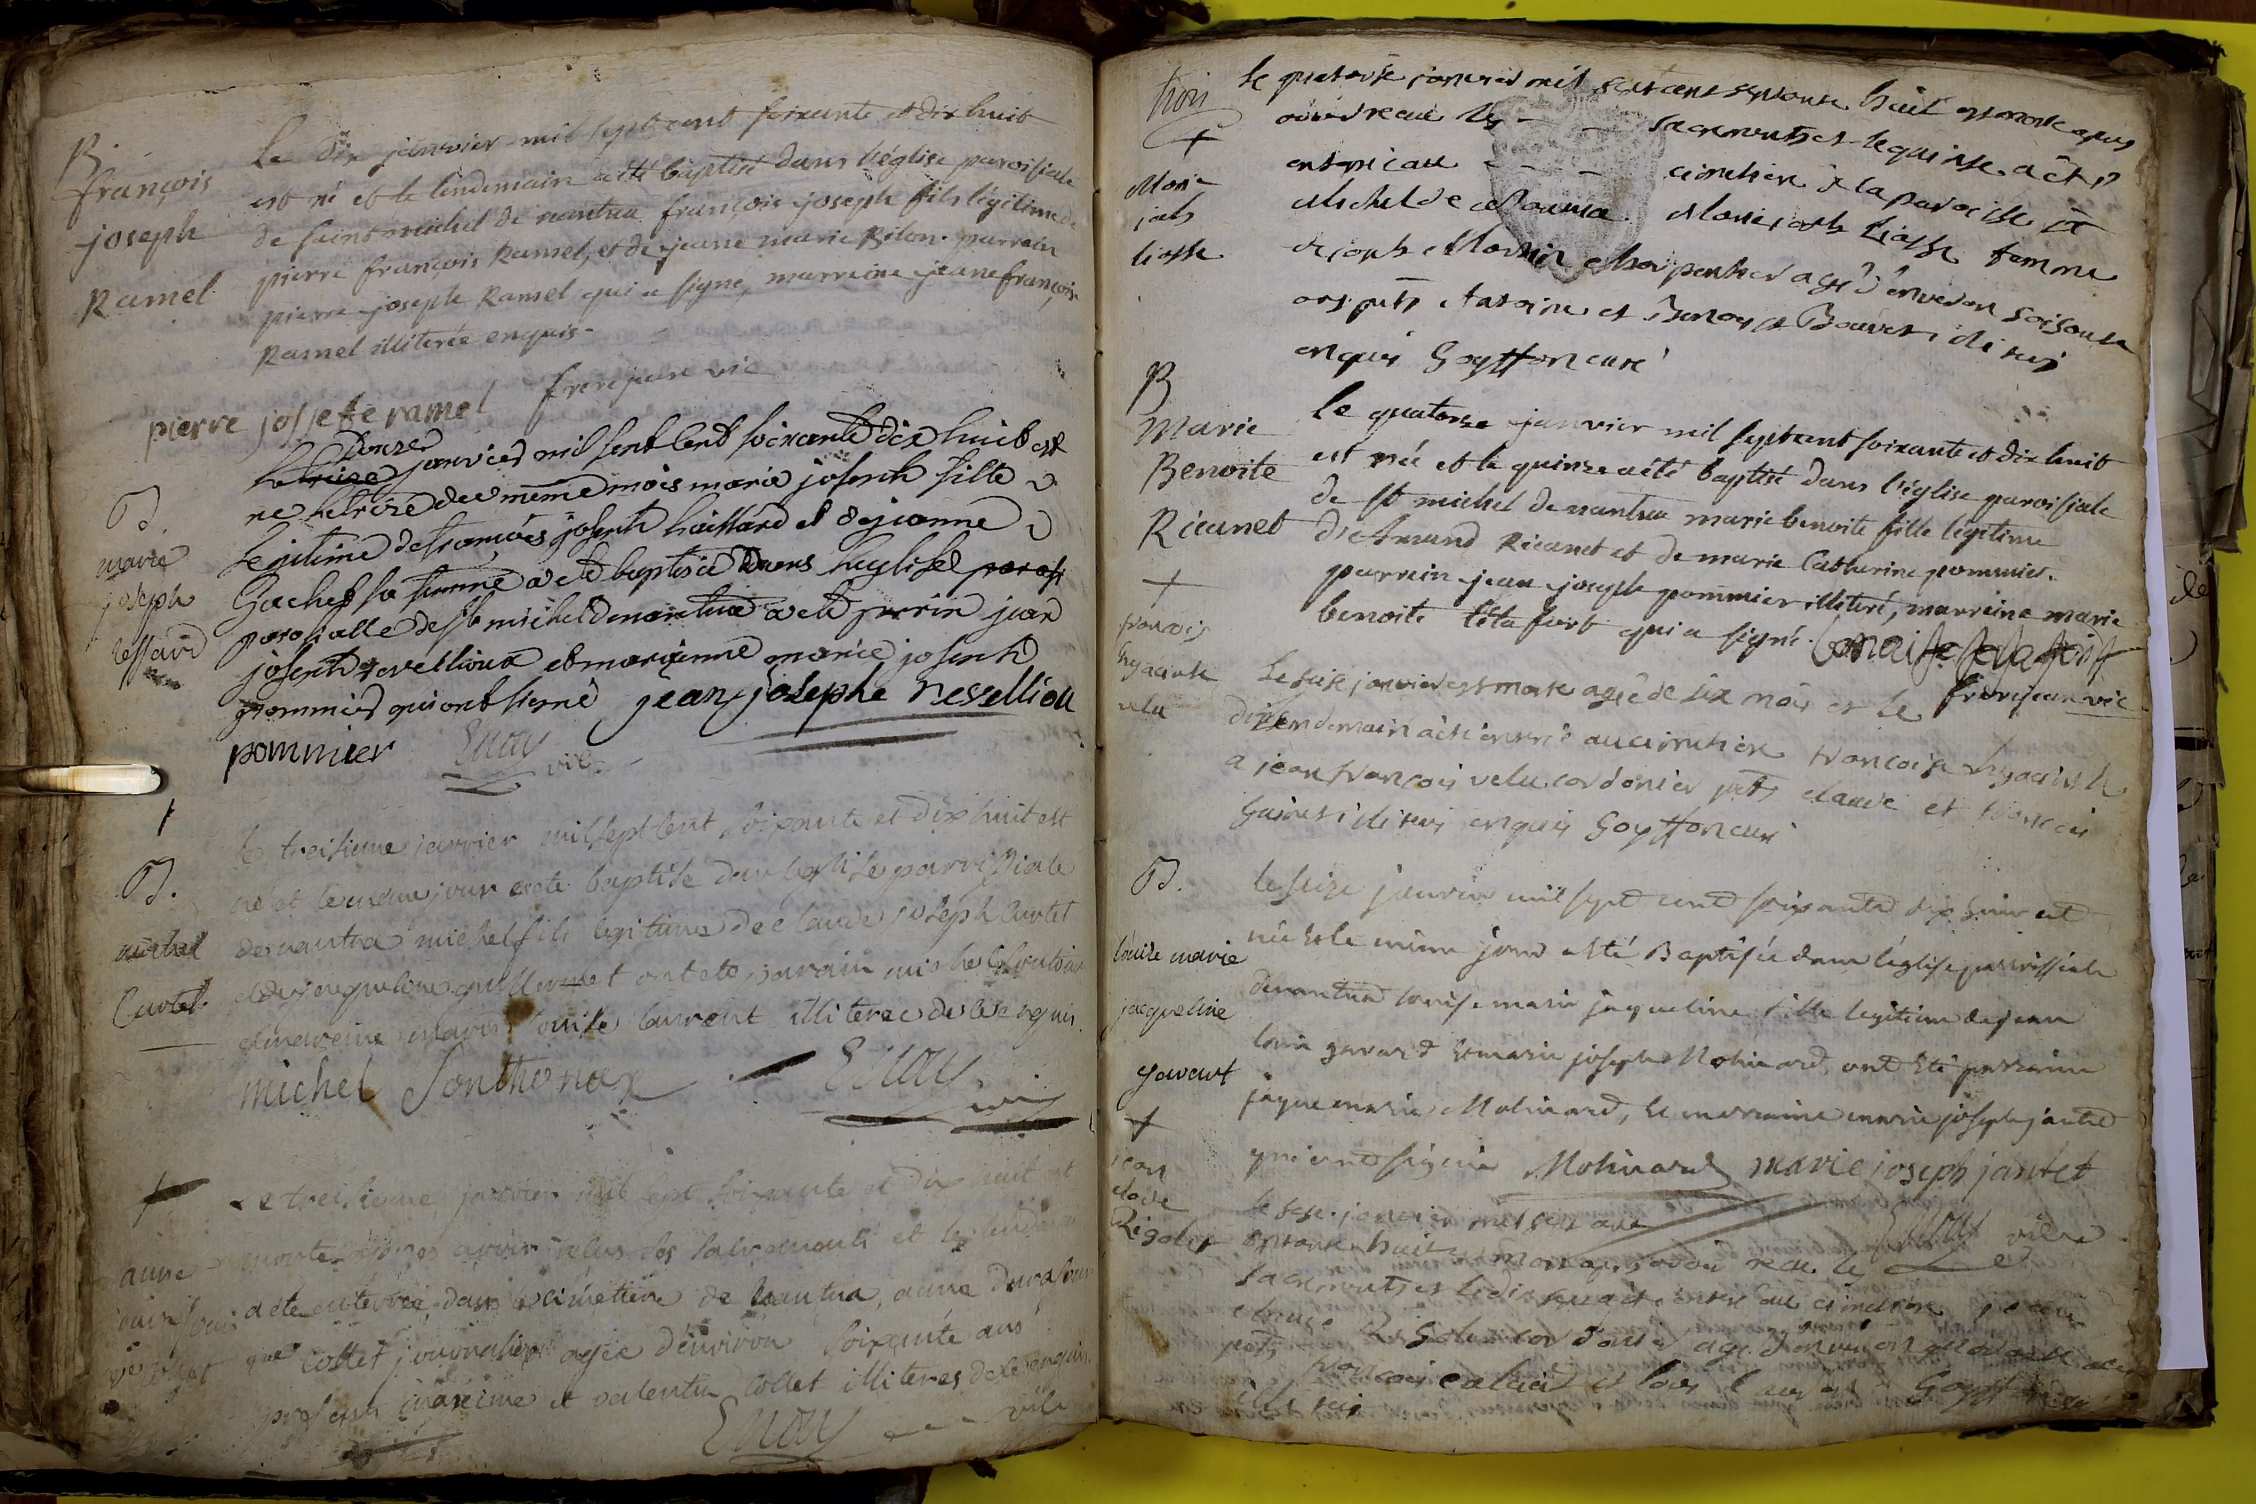 B.
françois
joseph
Ramel
Le dix janvier mil sept cent soixante et dix huit
est né et le lendemain a été baptisé dans l'église paroissiale
de saint michel de nantua françois joseph fils légitime de
pierre françois Ramel, et de jeane marie Bilon. parrain
pierre joseph Ramel qui a signé, marraine jeane françoise
Ramel illiterée enquis
frerejean vic
pierre josse fe ramel
B.
marie
joseph
douze
le treize janvier mil sept cent soixante dix huit est
ne le trize du meme mois marie joseph fille
legitime de françois joseph haissard et de jeanne
Gachet sa femme a eté baptisée dans leglise parosi
parosialle de st michel de nantua a eté parin jean
joseph nevellioux et maraienne marie joseph
pommier qui ont signé jean josephe nesselliou
pommier Enay vic
B.
michel
Curtet
le treisieme janvier mil sept cent soixante et dix huit est
né et le meme jour a ete baptise dans leglise parroissiale
de nantua michel fils legitime de claude joseph Curtet
et de jacqueline guillermet ont ete parrain michel Sonthonax
et mareine marie louise laurent illiteree de ce enquis.
michel Sonthonax Enay vic
Le treisieme janvier mil sept soixante et dix huit est
morte apres avoir reçus les sacrements et le lendemain
a ete enterrée dans le cimetiere de nantua, anne
collet journalier agée d'environ soixante ans
presents maxime et valentin Collet illiteres de ce enquis.
Enay vic
Marie
josh
liasse
Le quatorse janvier mil sept cent septante huit est morte apres
avoir recue les sacrements et le quinse a été
enterrée au cimetiere de la paroisse st
Michel de Nantua Marie josh liasse femme
de josh Martin charpentier agée d'environ soisante
ans pnts Antoine et Benoit Bouvet ilitérés
enquis Goyffon curé
B
Marie
Benoite
Ricanet
Le quatorze janvier mil sept cent soixante et dix huit
est née et le quinze a été baptisé dans l'église paroissiale
de st michel de nantua marie benoite fille légitime
d'Amand Ricanet et de marie Catherine pommier.
parrain jean joseph pommier illiteré, marraine marie
benoite tête fort qui a signé.
frerejean vic
françois
hyacinte
velu
Le seise janvier est mort agé de six mois et le
lendemain a été enterré au cimetiere francois hyacinth
a jean françois velu cordonier pnts claude et francois
ilitérés enquis Goyffon curé
B.
louise marie
jacqueline
gavart
le seize janvier mil sept cent soixante dix huit est
née et le même jour a eté Baptisée dans l'église parroissiale
de nantua louise marie jaqueline fille legitime de jean
louis gavard et marie joseph Molinard, ont été parrain
jaque marie Molinard, et marraine marie joseph jantet
qui ont signé Molinard marie joseph jantet
Enay vicre
jean
claude
Rigolet
le sese janvier mil sept cent
septante huit est mort apres avoir recu les
sacrements et le dix sept a été enteré au cimetiere jean
claude Rigolet cordonier agé d'environ
pnts francois et louis Goyffon